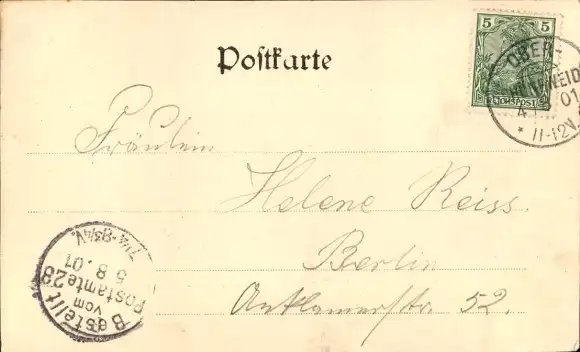 Postkarte
5 5
REICHSPOST
OBER-
01
* 11-12V.
Fräulein
Helene Reiss.
Berlin
Anklamerstr. 52.
Bestellt
vom
Postamte 28
5 8. 01
7¼-8¾V.